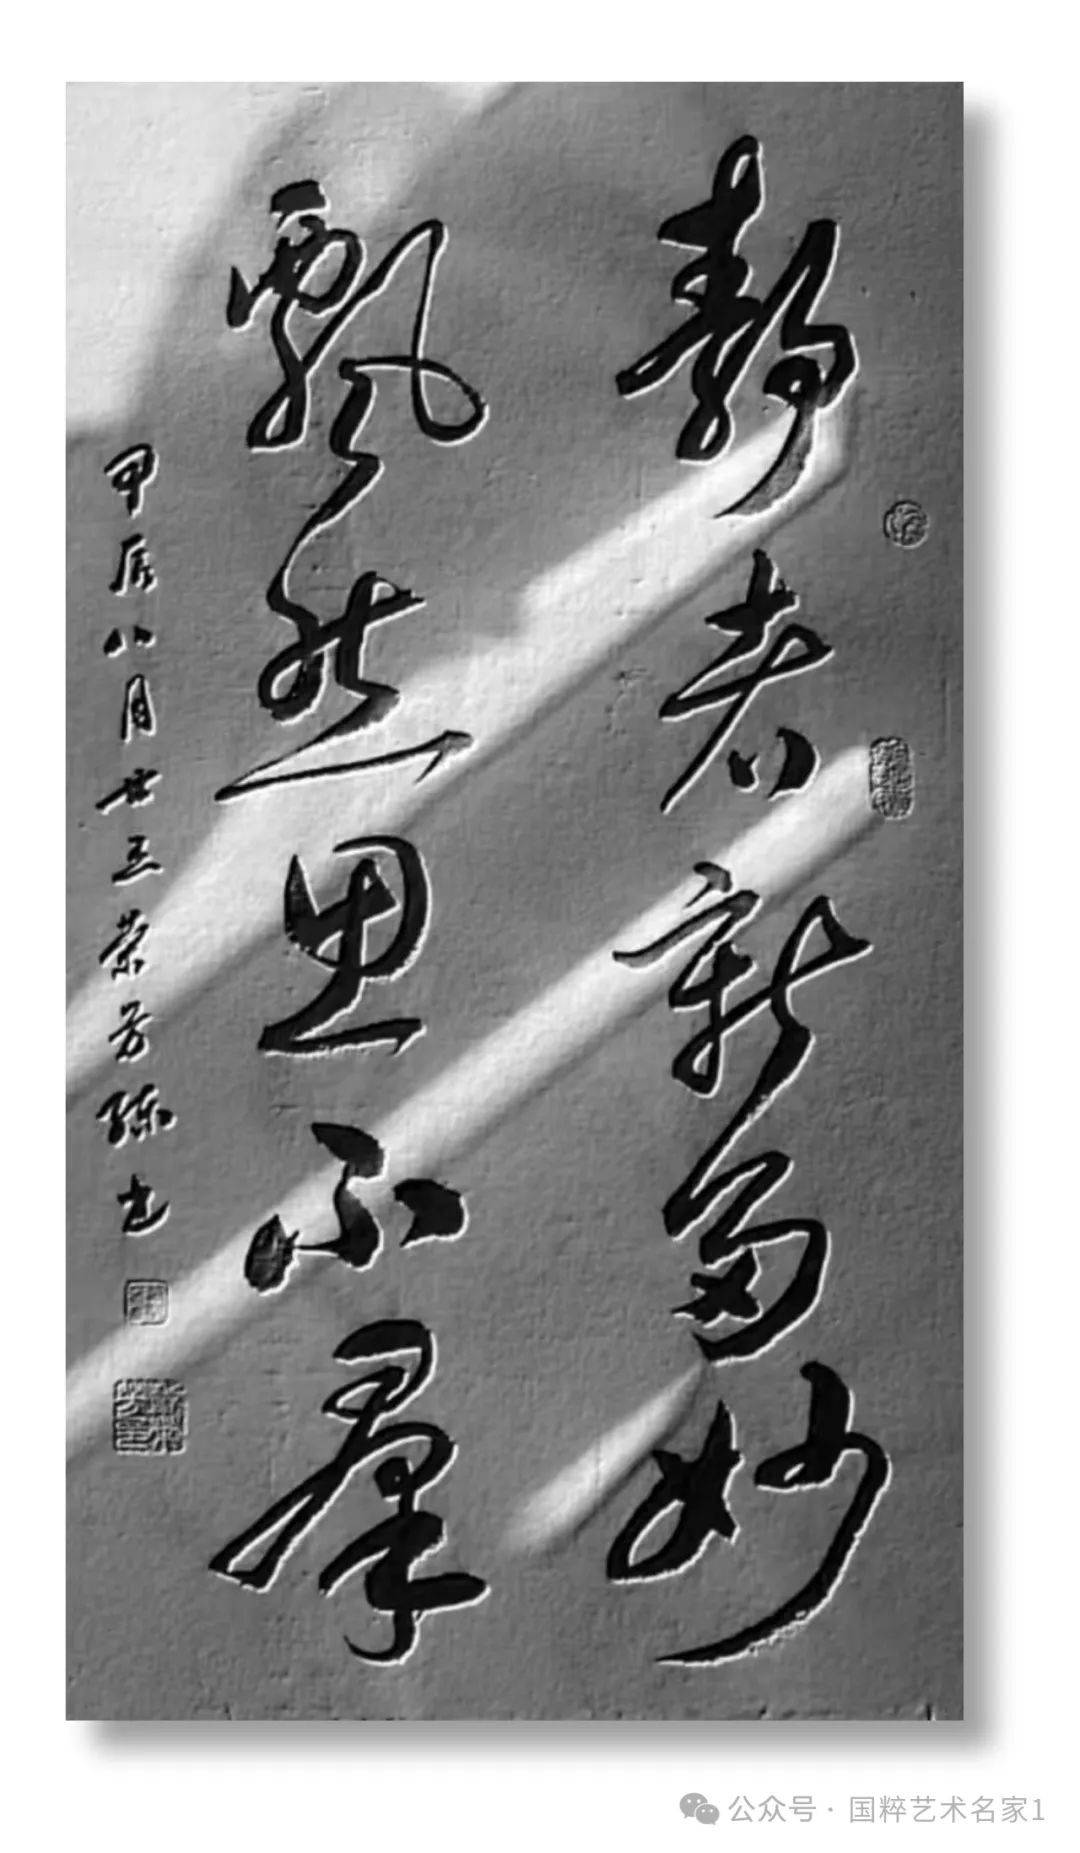 静者新多妙
飘然思不群
甲辰八月廿三荣芳
公众号 · 国粹艺术名家1